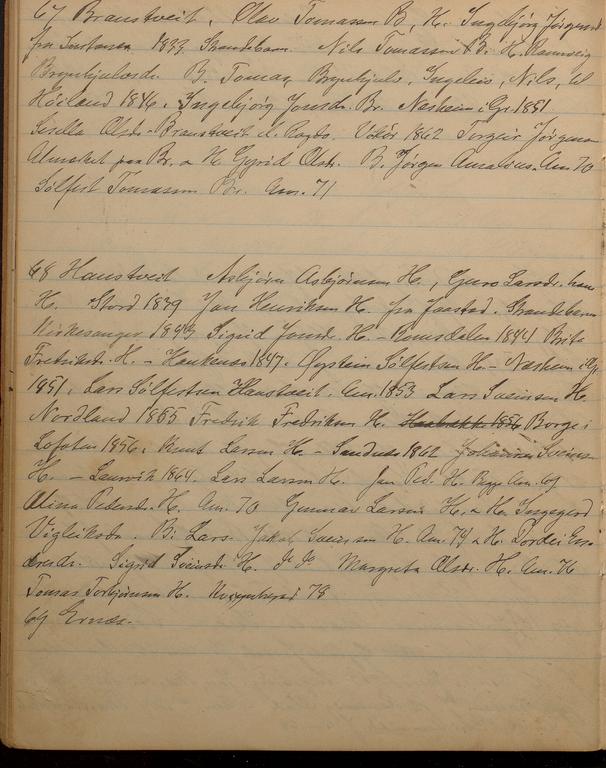 67 Branstveit, Olav Tomasson B, H. Ingebjørg Jørgensd
fra 1839 Strandebarm. Nils Tomasson Br. H. Rannveig
Brynhjulvsdr. B. Tomas, Brynhjulv, Ingeleiv, Nils, til
Høiland 1846. Ingebjørg Jonsdr. Br. Nasheim i Gr. 1851
Sisella Olsdr. Branstveit d. Vikør 1862 Torgeir Jørgenson
Almaket paa Br. a H. Gyrid Olsdr. B. Jørgen Am. 70
Sölfest Tomasson Br. Am. 71
68 Haustveit Asbjørn Asbjørnson H., Guro Larsdr. hans
H. Stord 1839 Jan Henrikson H. fra Jaastad. Strandebarm
1843 Sigrid Jonsd. H. - Romsdalen 1844 Brita
Fredriksdr. H. - Haukenæs 1847. Øystein Sölfestsen H. - Nasheim i Gr.
1851, Lars Sölfestsen Haustveit. Am. 1853 Lars Sveinson H.
Nordland 1855 Fredrik Fredrikson H. 1856 Borge i
Lofoten 1856, Knut Larson H. - 1862 Johannes Sveins-
H. - Laurvik 1864. Lars Larson H. Jan Ped. H. Am. 69
Olina Pedersd. H. Am. 70 Gunnar Larson H. a H. Ingegerd
Vigleiksda. B: Lars. Jakob Sveinson H. Am. 74 a H. Tordei
dresdr. Sigrid Sveinsdr. H. Do Do Margreta Olsdr. H. Am. 76
Tomas Torbjørnson H. 78
69 Ernæs.